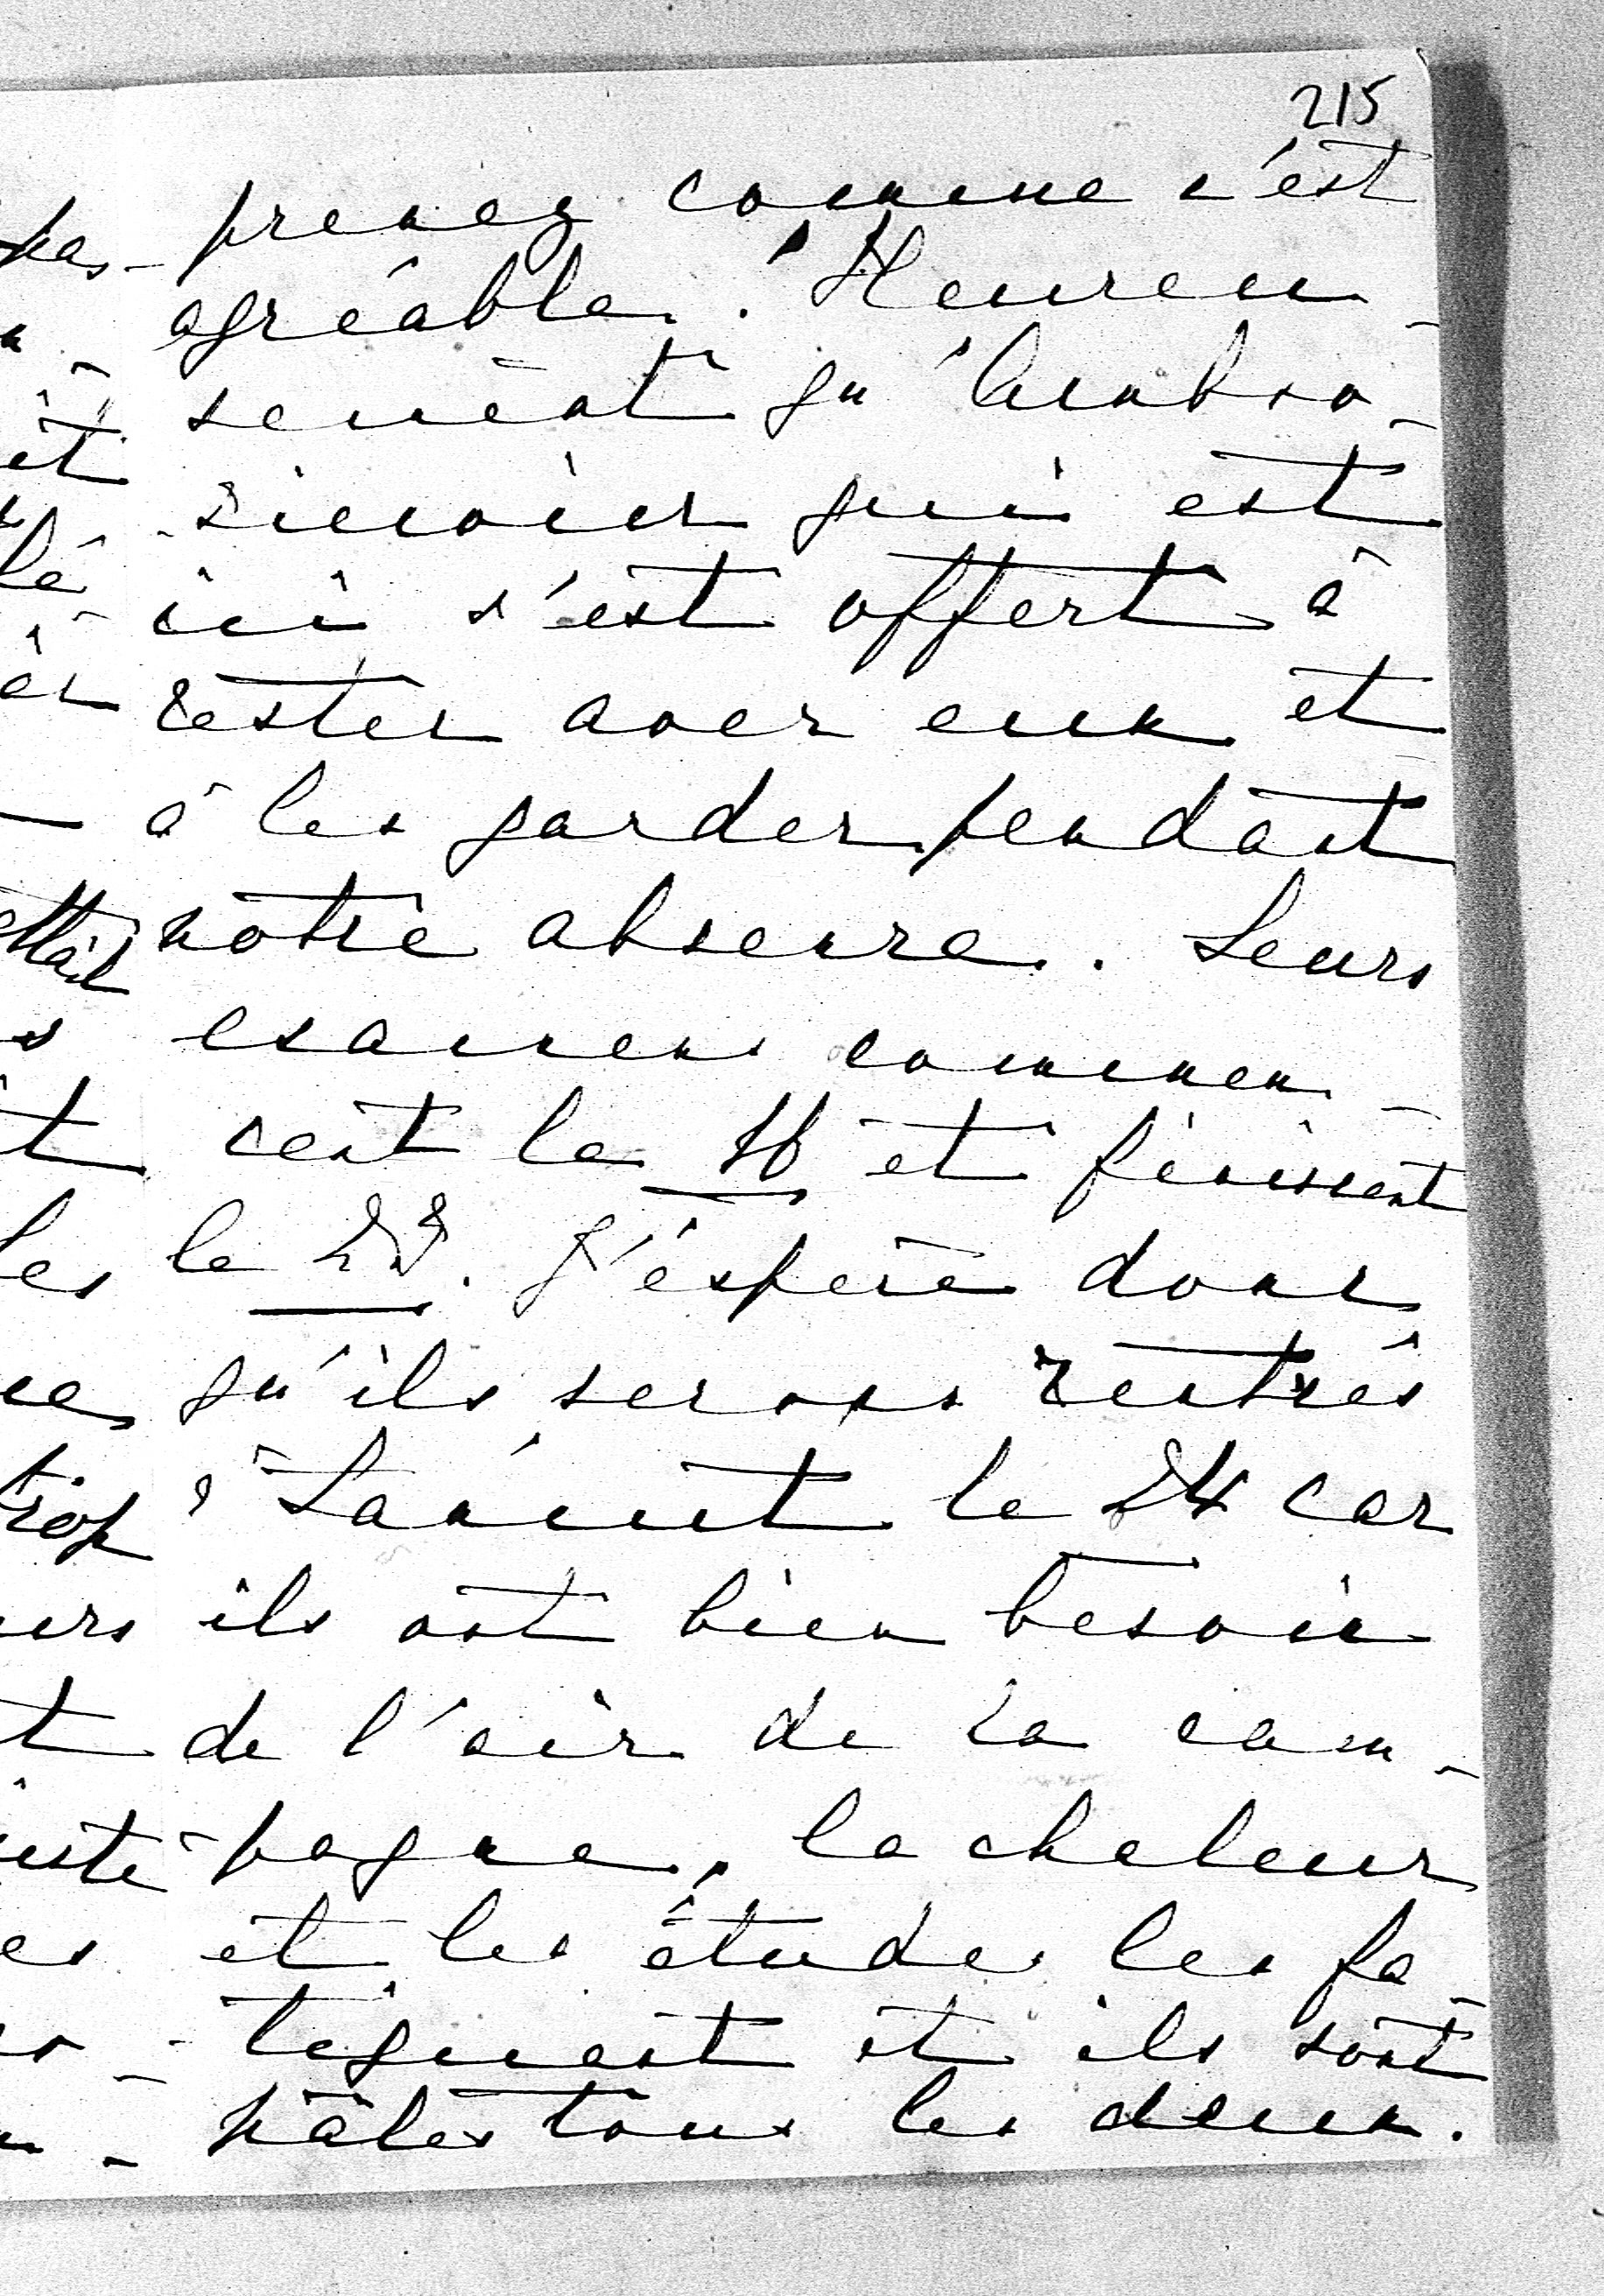 215
prenez comme c'est
agréable. Heureu-
sement qu'Ambro-
sievier qui est
ici s'est offert à
rester avec eux et
à les garder pendant
notre absence. Leurs
examens commen-
cent le 16 et finissent
le 23. J'espère donc
qu'ils serons rentrés
à Lancut le 24 car
ils ont bien besoin
de l'air de la cam-
pagne, la chaleur
et les études les fa-
tiguent et ils sont
pâles tous les deux.